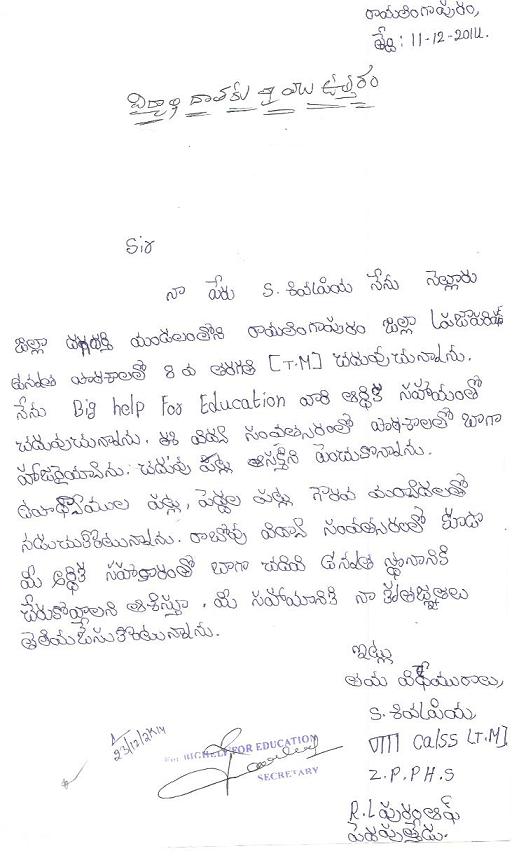 రామలింగాపురం,
తేది : 11-12-2014.
విద్యార్థి దాతకు వ్రాయు ఉత్తరం
Sir
నా పేరు S. శివప్రియ నేను నెల్లూరు
జిల్లా దగదర్తి మండలంలోని రామలింగాపురం జిల్లా ప్రజాపరిషత్
ఉన్నత పాఠశాలలో 8 వ తరగతి [T.M] చదువుచున్నాను.
నేను Big help For Education వారి ఆర్థిక సహాయంతో
చదువుచున్నాను. ఈ విద్యా సంవత్సరంలో పాఠశాలలో బాగా
హాజరైయ్యాను. చదువు పట్ల ఆసక్తిని పెంచుకొన్నాను.
ఉపాధ్యాయుల పట్ల, పెద్దల పట్ల గౌరవ మర్యాదలతో
నడుచుకొంటున్నాను. రాబోవు విద్యా సంవత్సరంలో కూడా
మీ ఆర్థిక సహకారంతో బాగా చదివి ఉన్నత స్థానానికి
చేరుకోవాలని ఆశిస్తూ, మీ సహాయానికి నా కృతజ్ఞతలు
తెలియజేసుకొంటున్నాను.
ఇట్లు
తమ విధేయురాలు,
S. శివప్రియ,
VIII calss [T.M]
Z.P.P.H.S
R.L పురం ఆఫ్
పెదపుత్తేడు.
23/12/2014
For BIG HELP FOR EDUCATION
SECRETARY